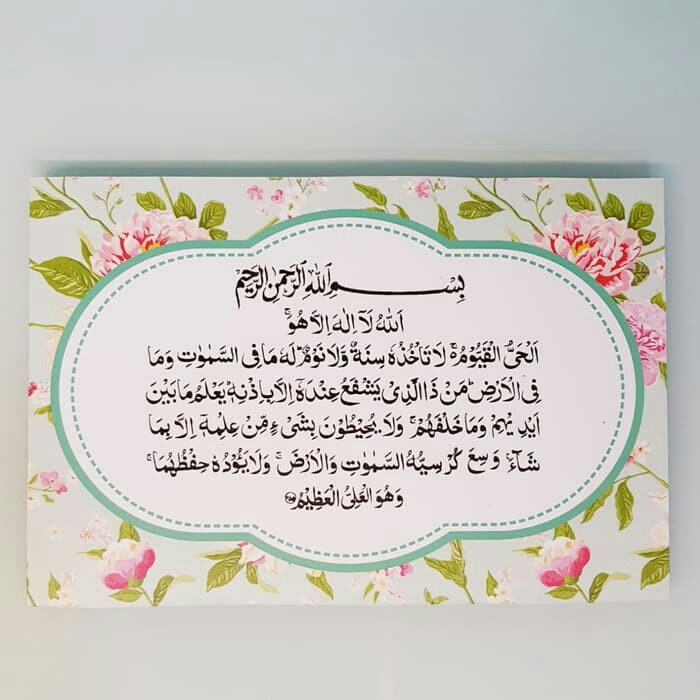 بِسْمِ اللهِ الرَّحْمٰنِ الرَّحِيْمِ
اَللهُ لَآ اِلٰهَ اِلَّا هُوَ ۚ
اَلْحَيُّ الْقَيُّوْمُ ۚ لَا تَاْخُذُهٗ سِنَةٌ وَّلَا نَوْمٌ ؕ لَهٗ مَا فِى السَّمٰوٰتِ وَمَا
فِى الْاَرْضِ ؕ مَنْ ذَا الَّذِىْ يَشْفَعُ عِنْدَهٗٓ اِلَّا بِاِذْنِهٖ ؕ يَعْلَمُ مَا بَيْنَ
اَيْدِيْهِمْ وَمَا خَلْفَهُمْ ۚ وَلَا يُحِيْطُوْنَ بِشَىْءٍ مِّنْ عِلْمِهٖٓ اِلَّا بِمَا
شَآءَ ۚ وَسِعَ كُرْسِيُّهُ السَّمٰوٰتِ وَالْاَرْضَ ۚ وَلَا يَـُٔوْدُهٗ حِفْظُهُمَا ۚ
وَهُوَ الْعَلِىُّ الْعَظِيْمُ